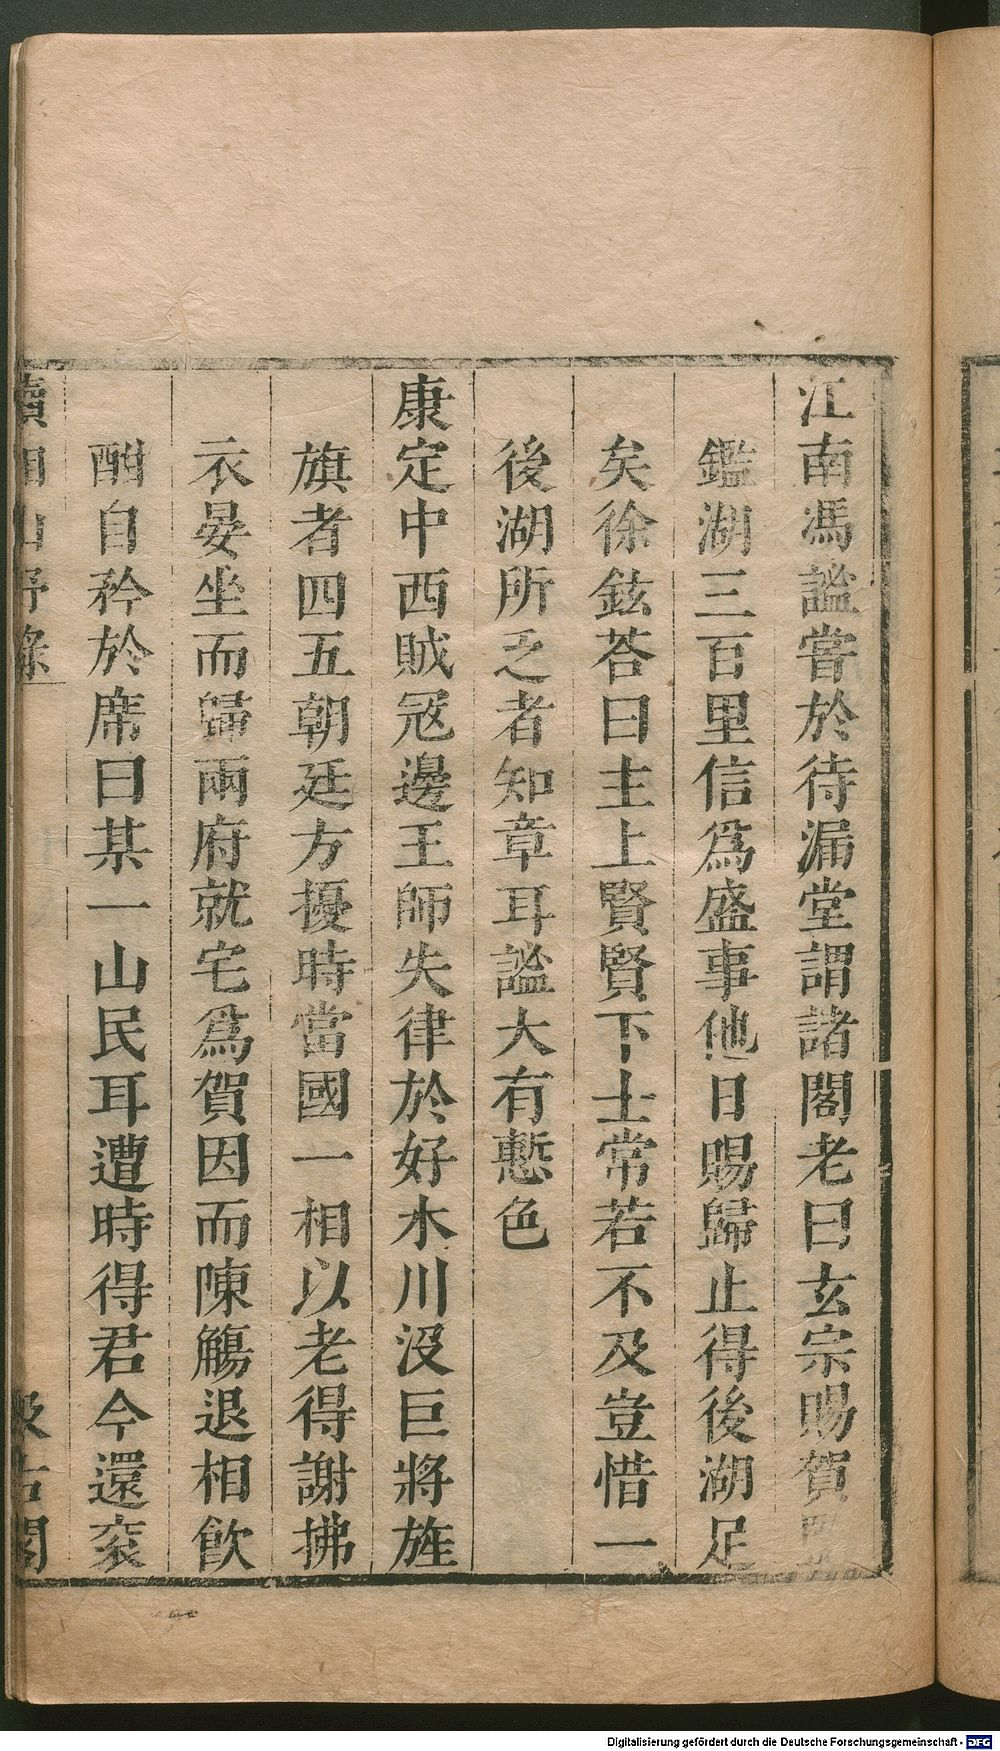 江南馮謐嘗於待漏堂謂諸閣老曰玄宗賜賀
鑑湖三百里信爲盛事他日賜歸止得後湖足
矣徐鉉荅曰主上賢賢下士常若不及豈惜一
後湖所乏者知章耳謐大有慙色
康定中西賊冦邊王師失律於好水川沒巨將旌
旗者四五朝廷方擾時當國一相以老得謝拂
衣晏坐而歸兩府就宅爲賀因而陳觴退相飲
酣自矜於席曰某一山民耳遭時得君今還衮
續湘山野錄
汲古閣
Digitalisierung gefördert durch die Deutsche Forschungsgemeinschaft - DFG